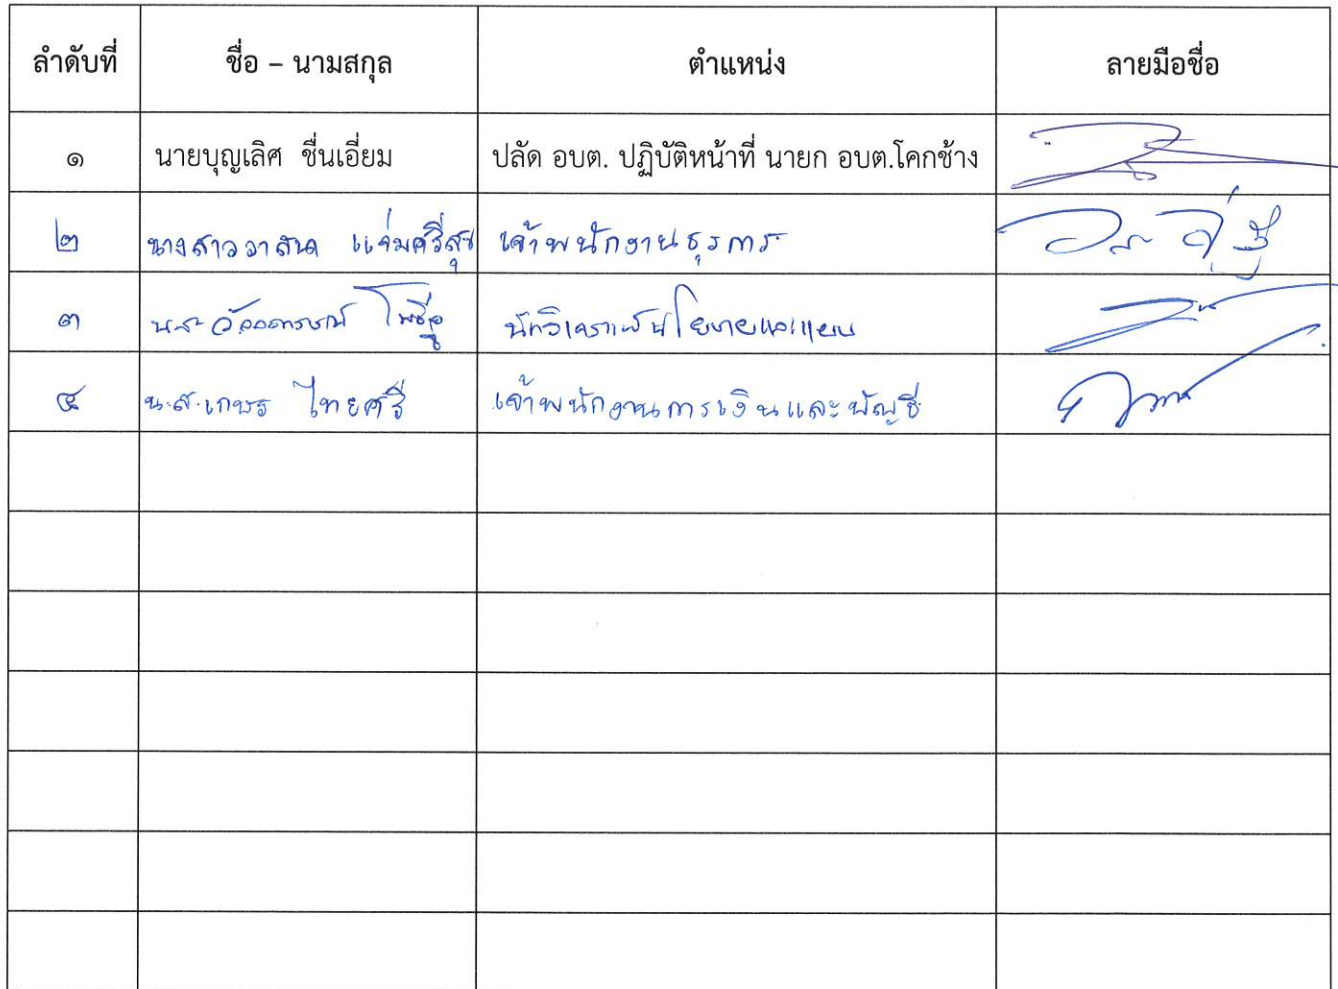 ลำดับที่ ชื่อ – นามสกุล ตำแหน่ง ลายมือชื่อ
๑ นายบุญเลิศ ชื่นเอี่ยม ปลัด อบต. ปฏิบัติหน้าที่ นายก อบต.โคกช้าง
๒ นางสาววาสนา แจ่มศรีสุข เจ้าพนักงานธุรการ
๓ น.ส. นักวิเคราะห์นโยบายและแผน
๔ น.ส.เกษร ไทยศรี เจ้าพนักงานการเงินและบัญชี